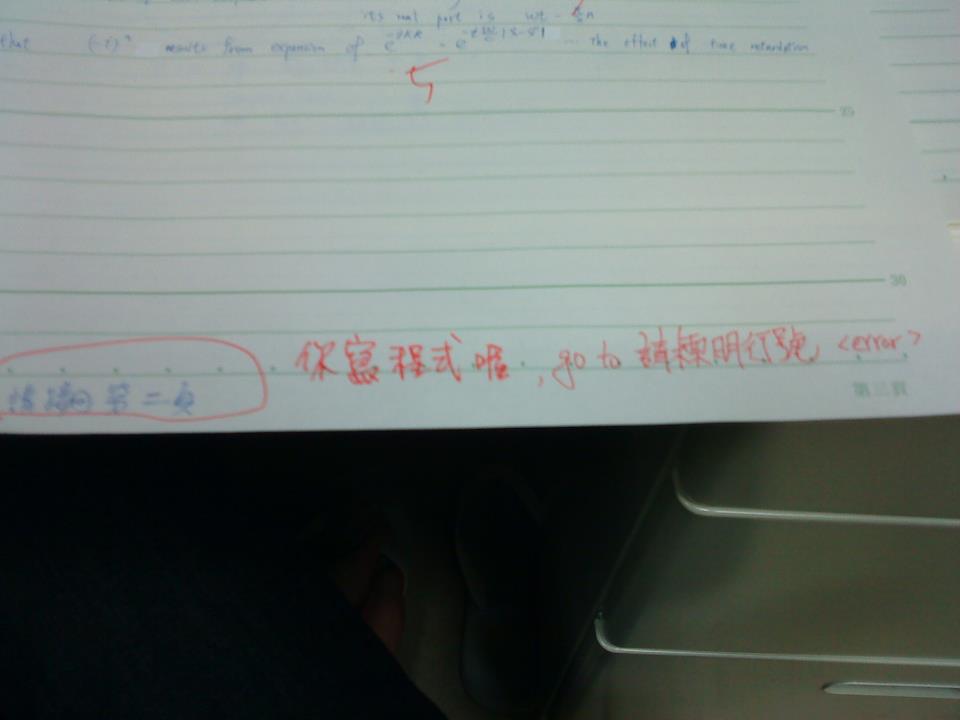 its real port is wt - π/2 n
that (-i)ⁿ results from expansion of e^-ikR = e^-i w/c |x-x'| ... The effect of time retardation
5
25
30
你寫程式喔, go to 請標明行號 <error>
請接回第二頁
第三頁